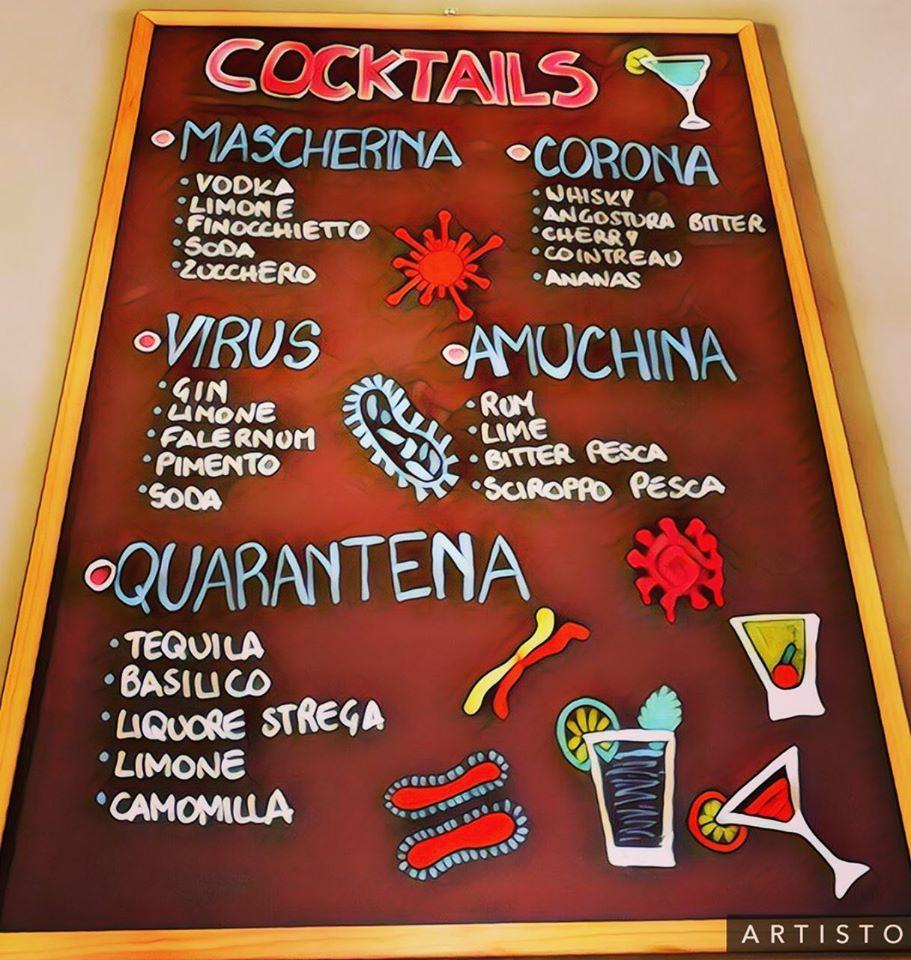 COCKTAILS
MASCHERINA
VODKA
LIMONE
FINOCCHIETTO
SODA
ZUCCHERO
CORONA
WHISKY
ANGOSTURA BITTER
CHERRY
COINTREAU
ANANAS
VIRUS
GIN
LIMONE
FALERNUM
PIMENTO
SODA
AMUCHINA
RUM
LIME
BITTER PESCA
SCIROPPO PESCA
QUARANTENA
TEQUILA
BASILICO
LIQUORE STREGA
LIMONE
CAMOMILLA
ARTISTO